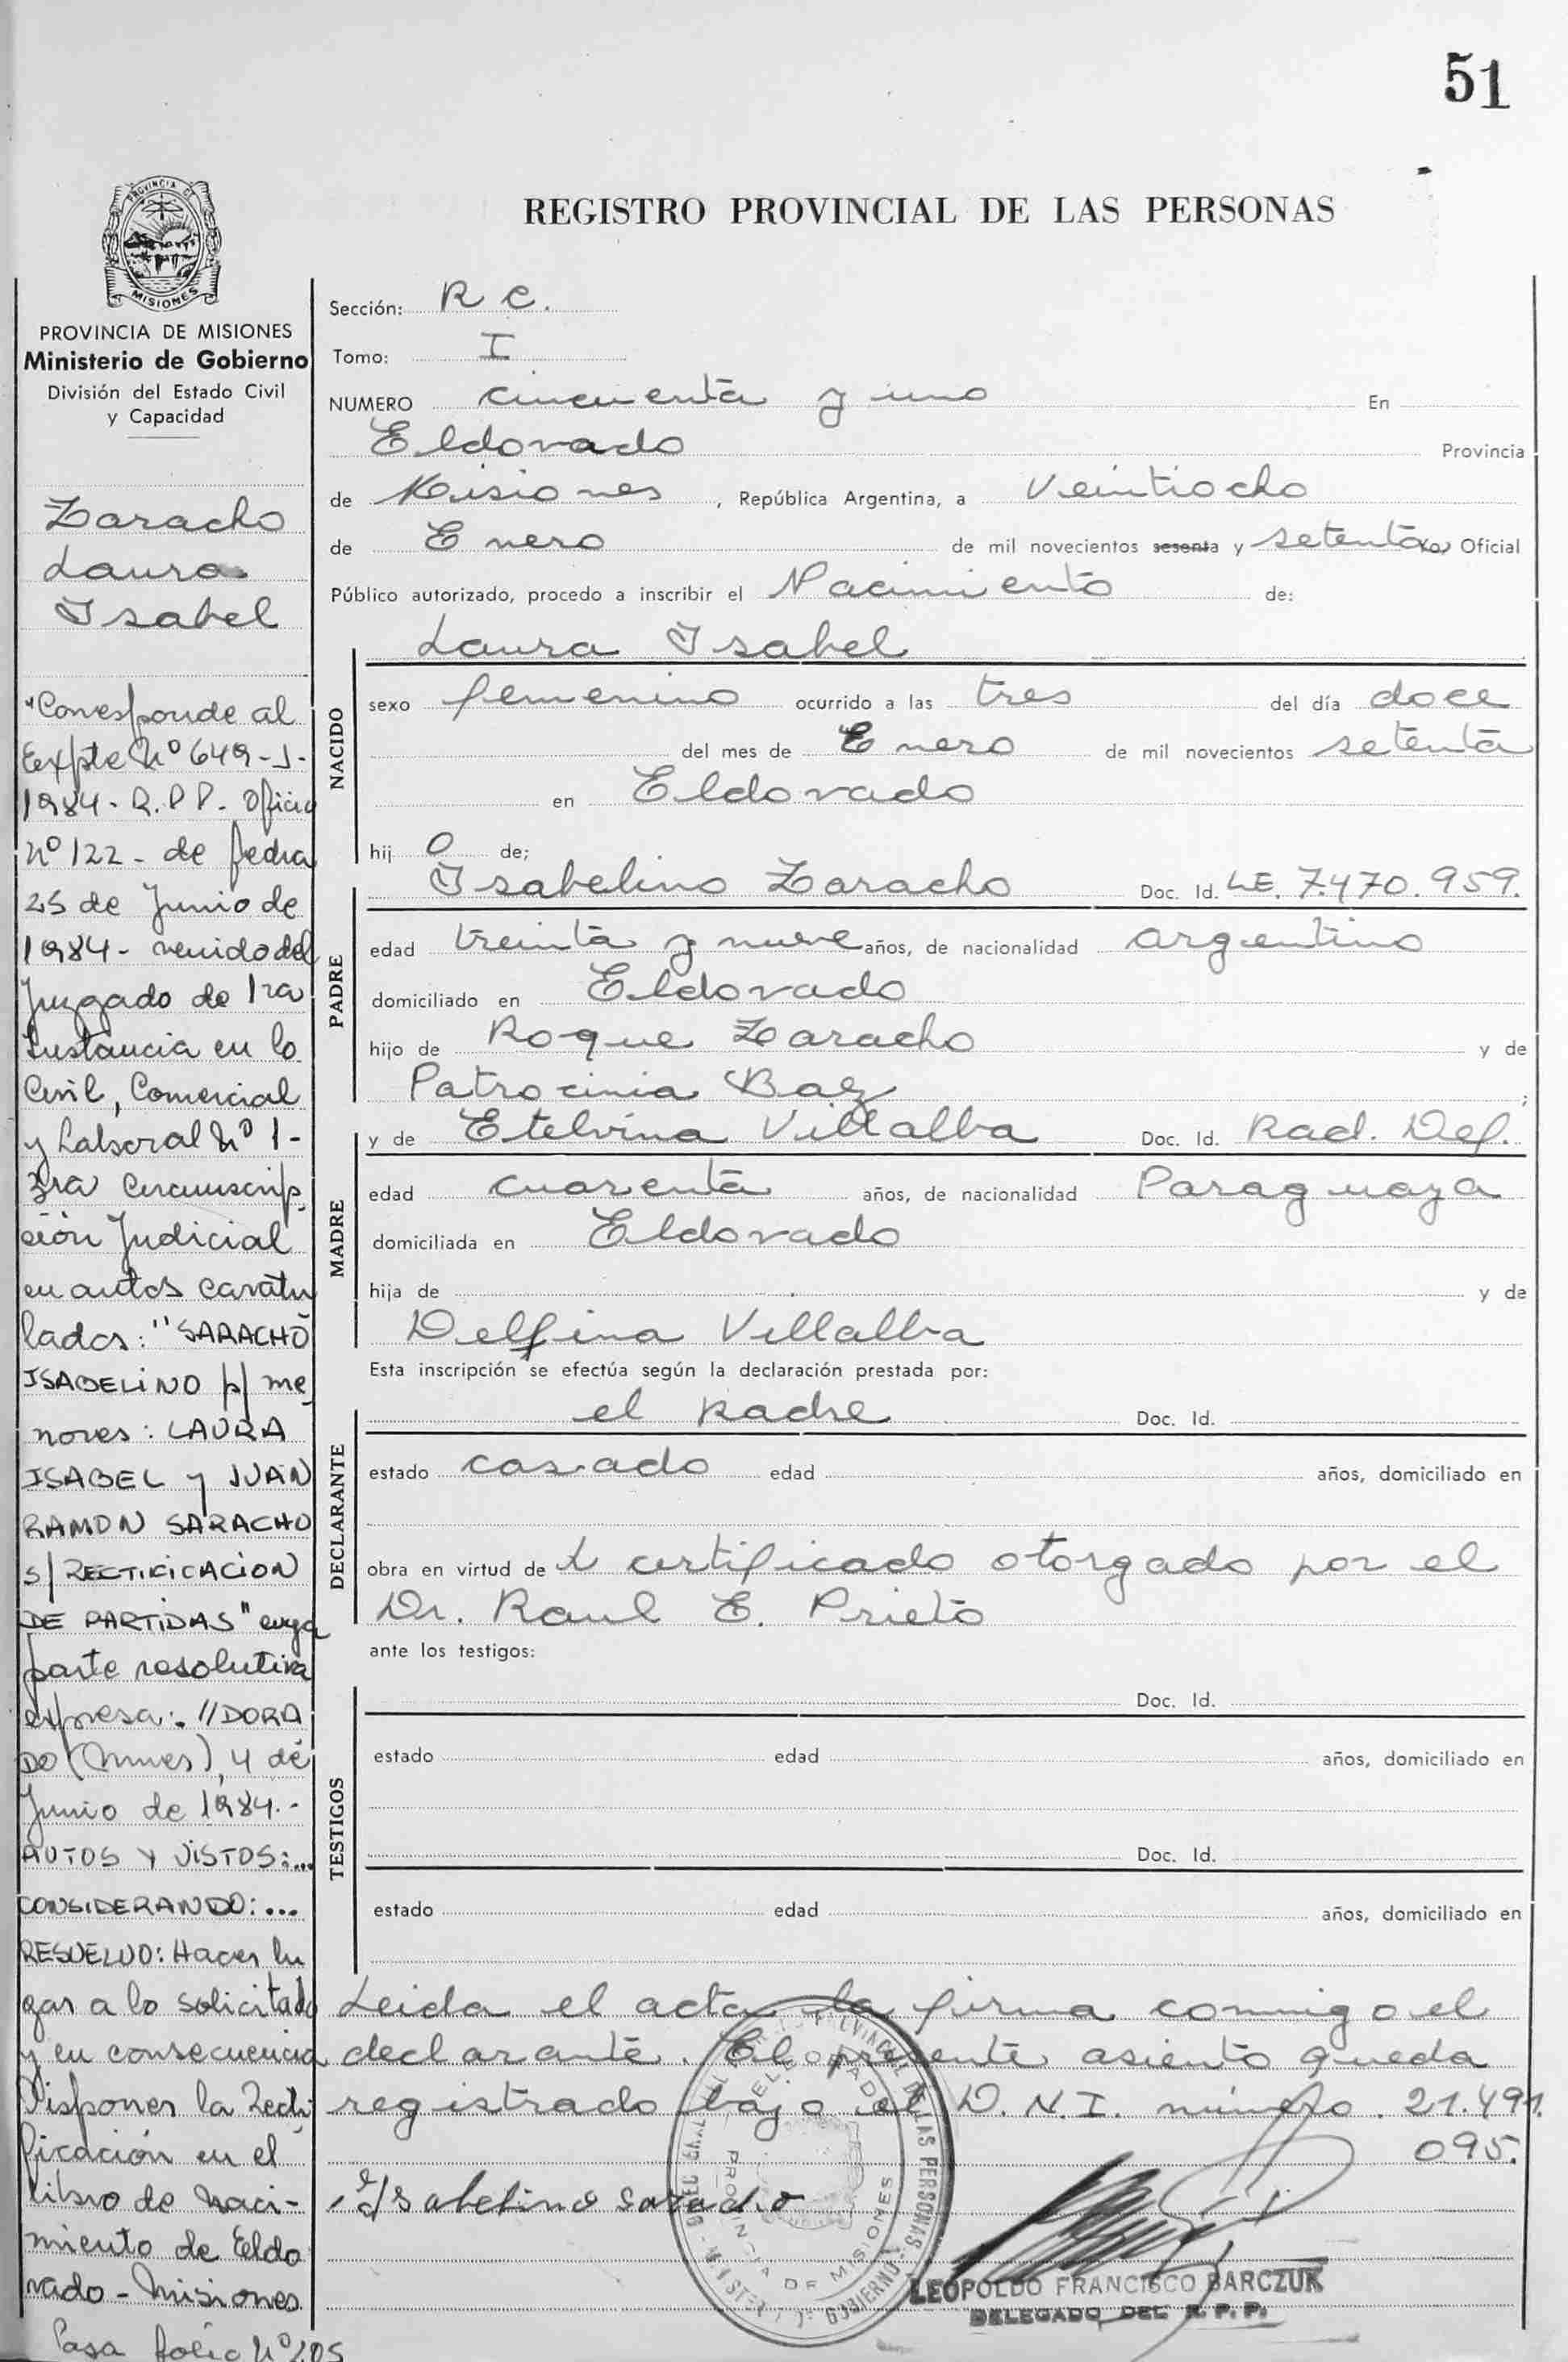 51
PROVINCIA DE
MISIONES
REGISTRO PROVINCIAL DE LAS PERSONAS
PROVINCIA DE MISIONES
Ministerio de Gobierno
División del Estado Civil
y Capacidad
Zaracho
Laura
Isabel
"Corresponde al
Expte Nº 649-J-
1984- R.P.P. Oficio
nº 122 - de fecha
25 de Junio de
1984- venido del
Juzgado de 1ra
Instancia en lo
Civil, Comercial
y Laboral Nº 1-
3ra Circunscrip
ción Judicial
en autos caratu
lados: "SARACHO
ISABELINO p/ me
nores: LAURA
ISABEL y JUAN
RAMON SARACHO
s/ RECTIFICACION
DE PARTIDAS" cuya
parte resolutiva
expresa: "//DORA
DO (Mnes), 4 de
Junio de 1984.-
AUTOS Y VISTOS:...
CONSIDERANDO:...
RESUELVO: Hacer lu
gar a lo solicitado
y en consecuencia
Disponer la Recti
ficación en el
libro de Naci-
miento de Eldo
rado - Misiones
Pasa folio Nº 205
Sección: R C.
Tomo: I
NUMERO cincuenta y uno En
Eldorado Provincia
de Misiones, República Argentina, a Veintiocho
de Enero de mil novecientos sesenta y setenta Oficial
Público autorizado, procedo a inscribir el Nacimiento de:
Laura Isabel
NACIDO
sexo femenino ocurrido a las tres del día doce
del mes de Enero de mil novecientos setenta
en Eldorado
hij o de;
Isabelino Zaracho Doc. Id. LE. 7.470.959.
PADRE
edad treinta y nueve años, de nacionalidad argentino
domiciliado en Eldorado
hijo de Roque Zaracho y de
Patrocinia Baez;
y de Etelvina Villalba Doc. Id. Rad. Def.
MADRE
edad cuarenta años, de nacionalidad Paraguaya
domiciliada en Eldorado
hija de y de
Delfina Villalba
Esta inscripción se efectúa según la declaración prestada por:
el padre Doc. Id.
DECLARANTE
estado casado edad años, domiciliado en
obra en virtud de L certificado otorgado por el
Dr. Raul E. Prieto
ante los testigos:
Doc. Id.
TESTIGOS
estado edad años, domiciliado en
Doc. Id.
estado edad años, domiciliado en
Leida el acta la firma conmigo el
declarante. El presente asiento queda
registrado bajo el D.N.I. número 21.491.
095.
Isabelino Saracho
LEOPOLDO FRANCISCO BARCZUK
DELEGADO DEL R. P. P.
PROVINCIA DE MISIONES